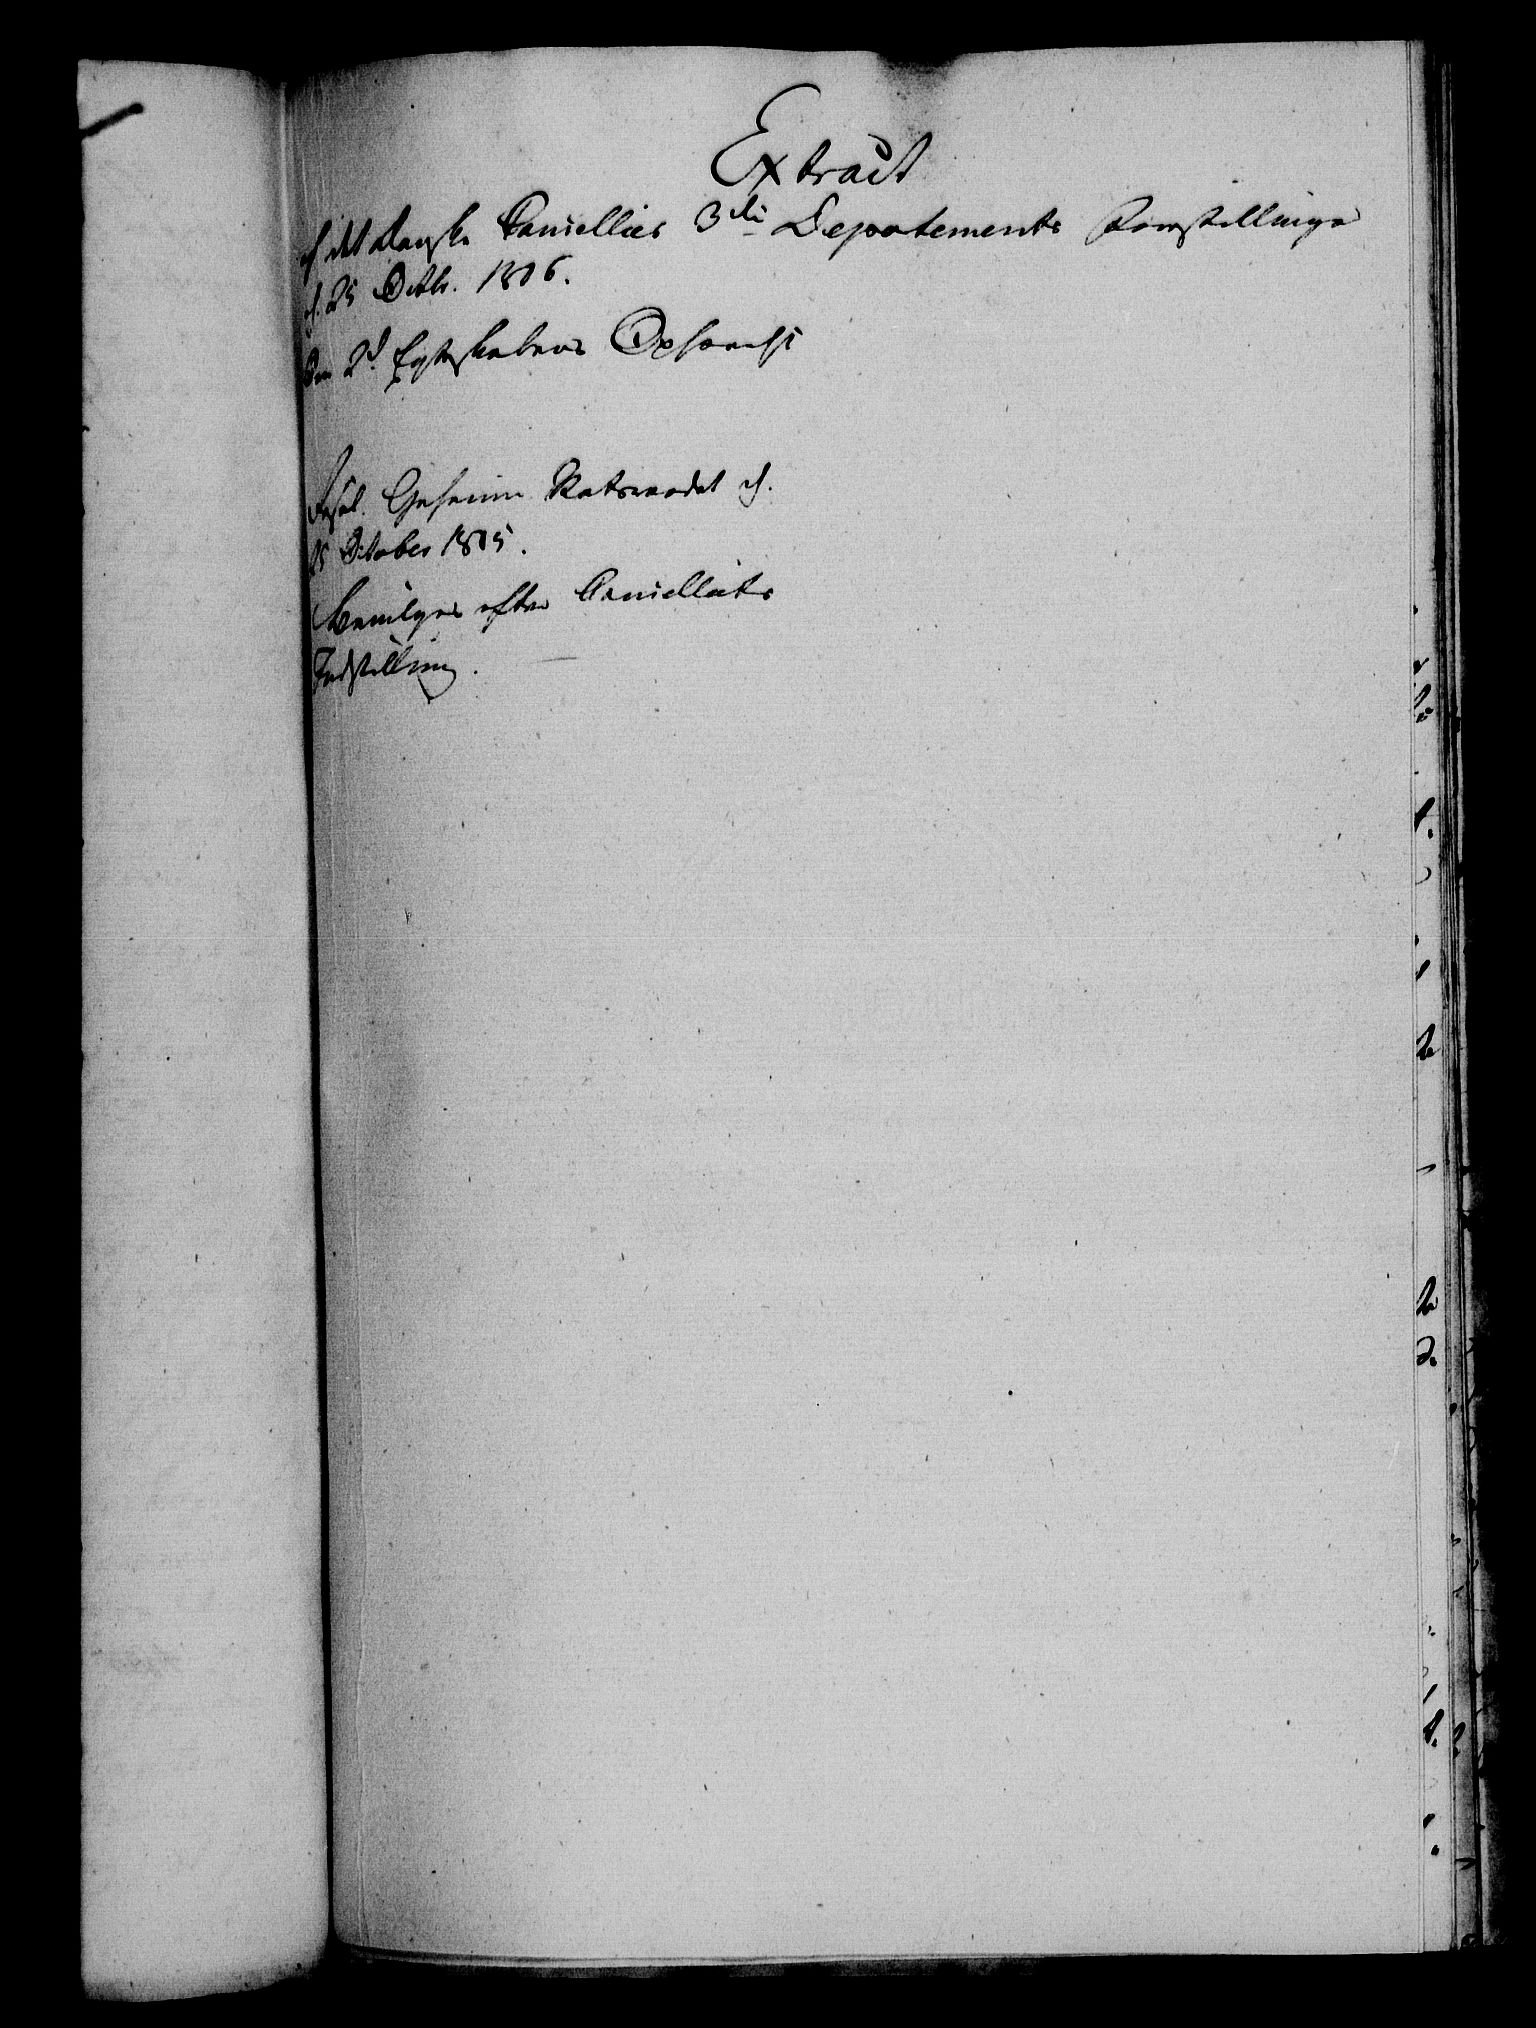 Extract
af det Danske Cancellies 3die Departements Forestillinger
d. 25 Octbr. 1805.
Om 2d Egteskabers Ophævelse
Resol. Geheime Statsraadet d.
25 October 1805.
Bevilges efter Cancelliets
Indstilling.